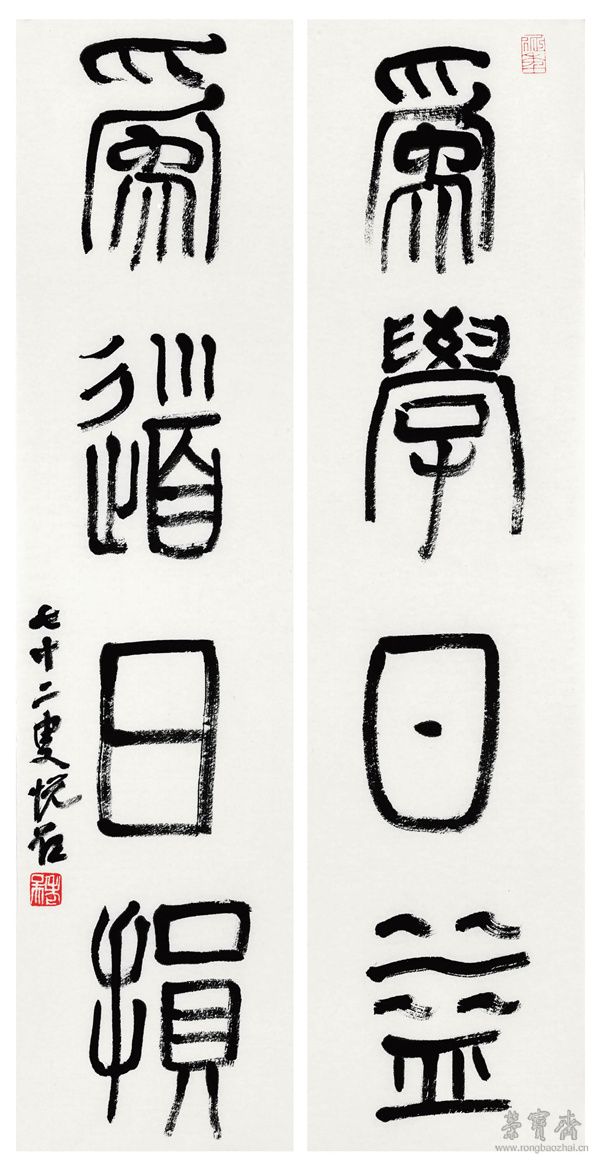 爲學日益
爲道日損
七十二叟悦石
榮寶齋
www.rongbaozhai.cn